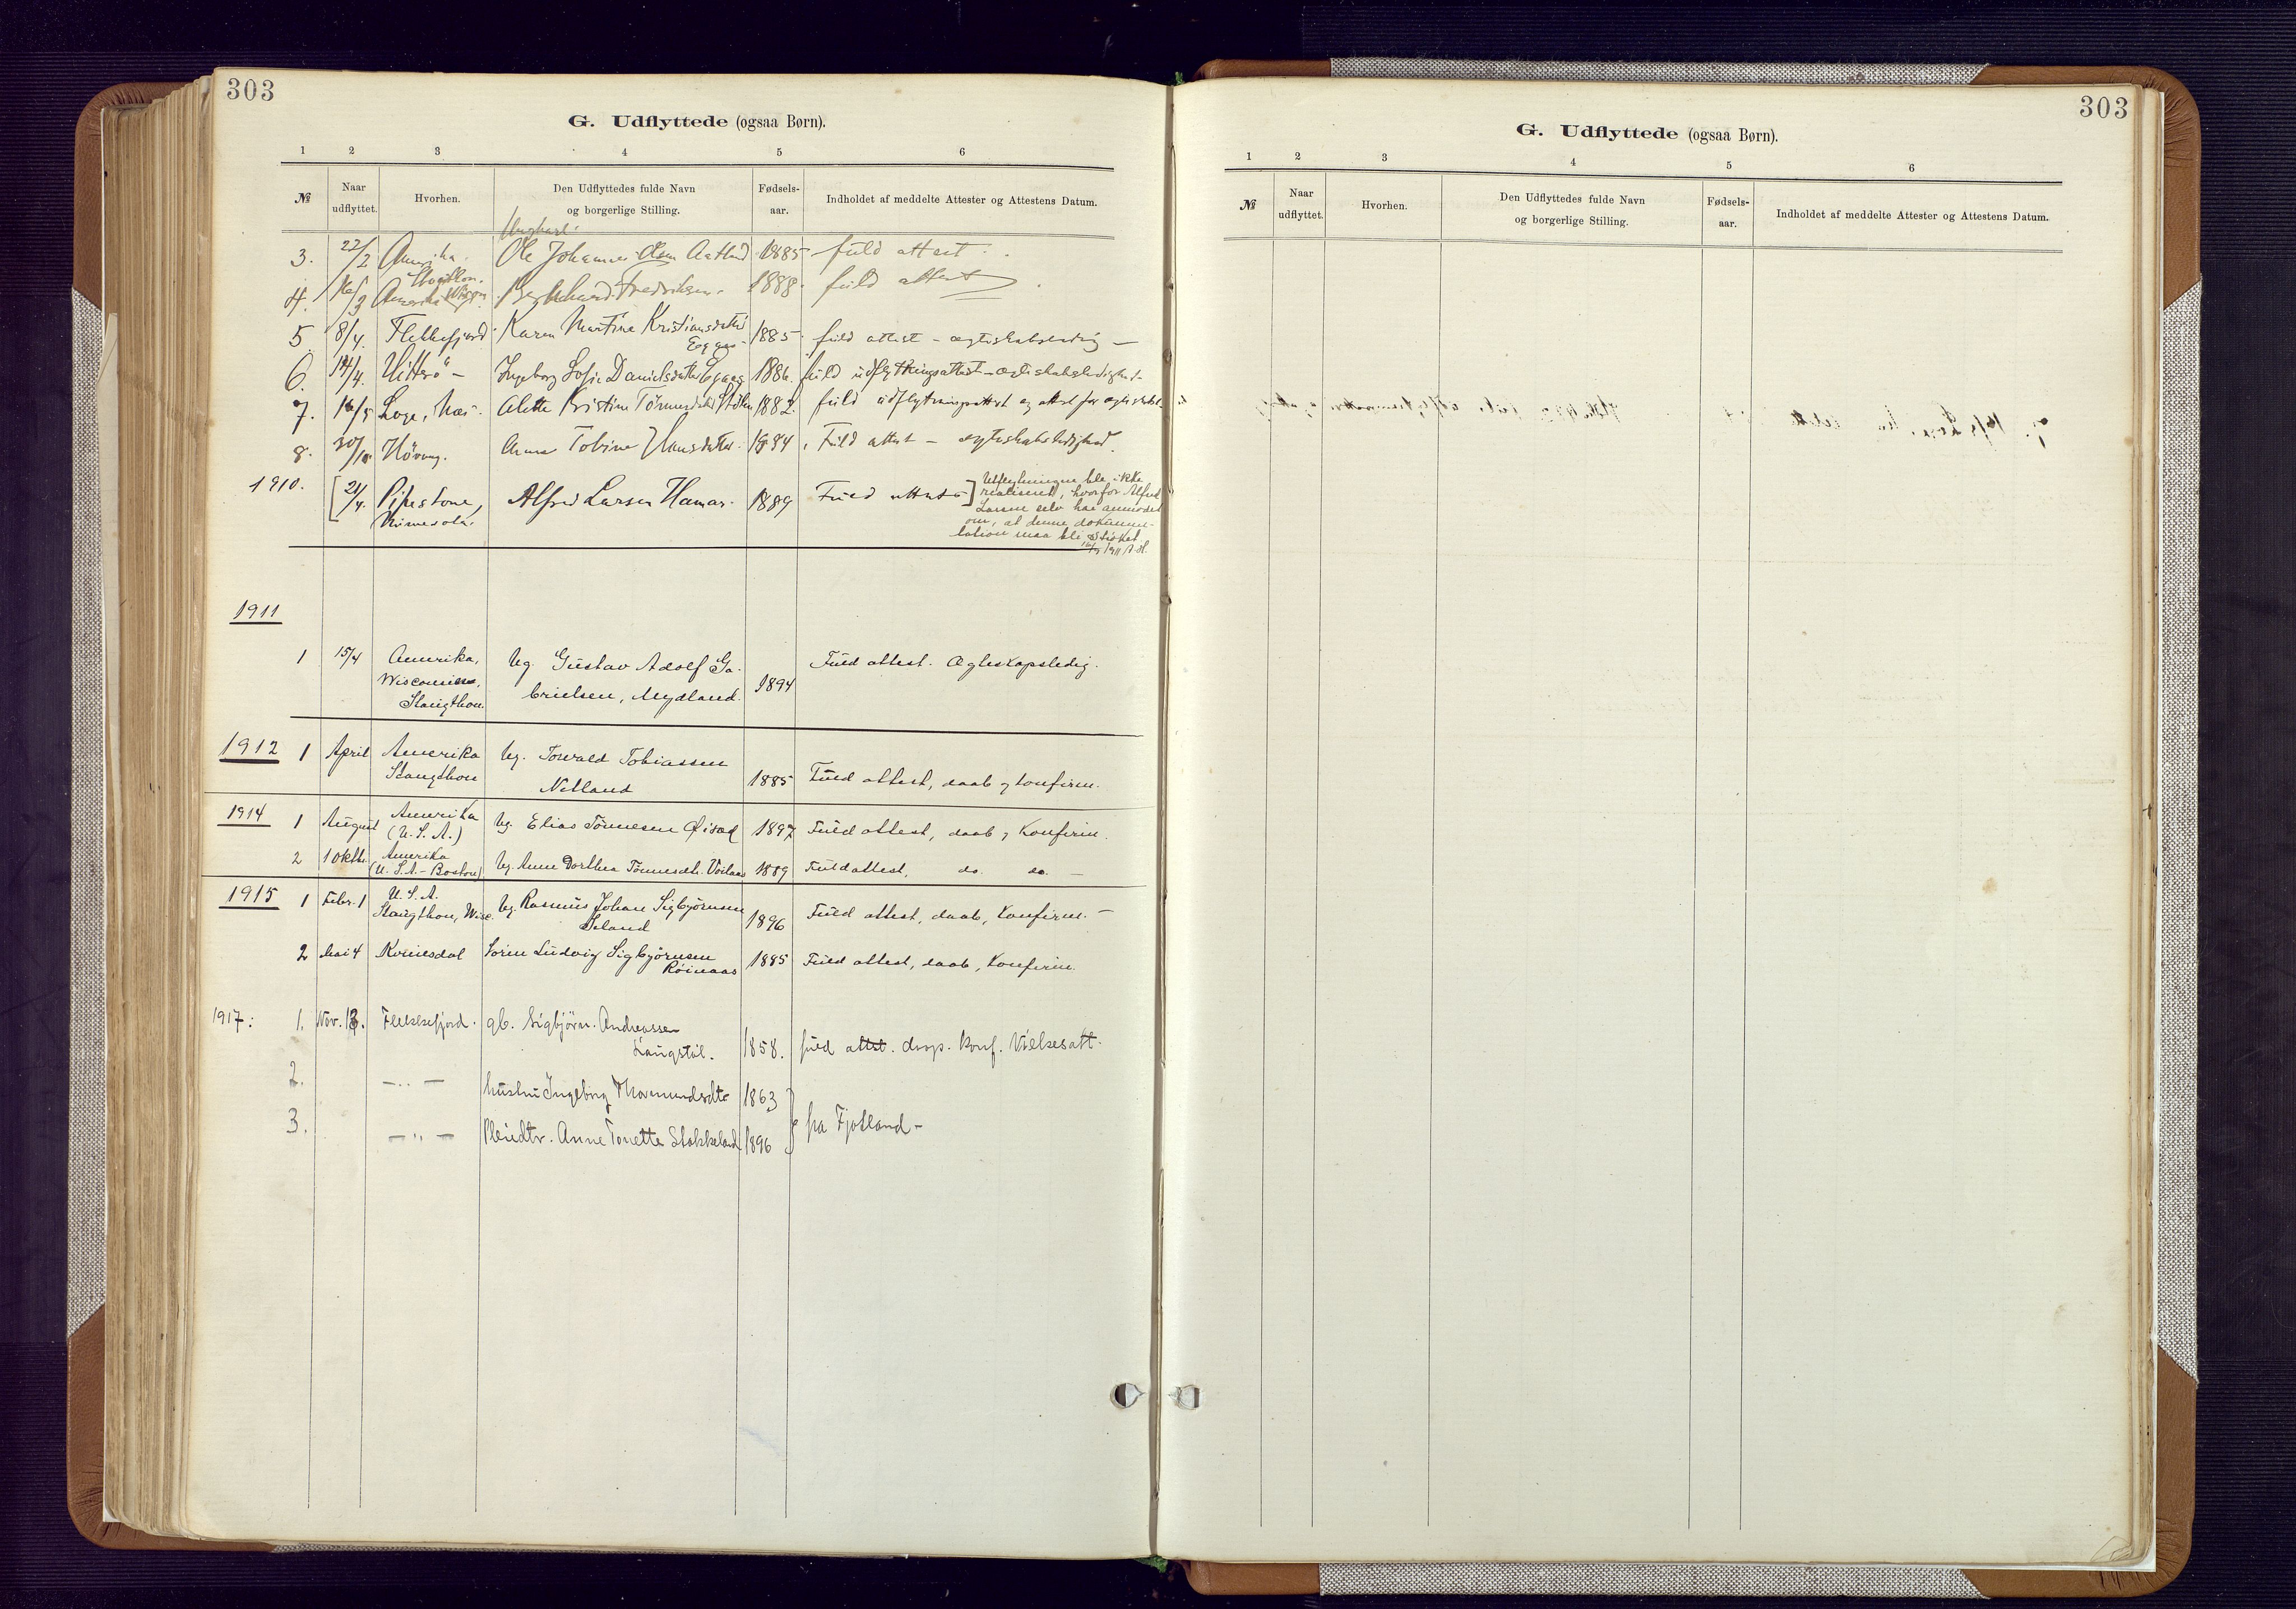 303
G. Udflyttede (ogsaa Børn).
1 2 3 4 5 6
№ Naar udflyttet. Hvorhen. Den Udflyttedes fulde Navn og borgerlige Stilling. Fødsels-aar. Indholdet af meddelte Attester og Attestens Datum.
Ungkarl
3. 22/2 Amerika. Ole Johannes Olsen Aatland 1885 fuld attest.
Staughton.
4. 16/3 Amerika Fredriksen. 1888. fuld attest
5. 8/4. Flekkefjord Karen Martine Kristiansdatter 1885 fuld attest – ægteskabsledig –
Eggaas
6. 14/4. Hitterø – Ingeborg Sofie Danielsdatter Egaas 1886. fuld udflytningsattest – ægteskabsledighet.
7. 16/5 Loge, Næs. Alette Kristine Tønnesdatter Stølen 1882. fuld udflytningsattest og attest for ægteskabsl.
8. 30/10 Anna Tobine Hansdatter. 1884. Fuld attest – ægteskabsledighed.
1910. [21/4. Pipestone, Alfred Larsen Hamar. 1889 Fuld attest]
Minesota.
Utflytningen ble ikke
realisert, hvorfor Alfred
Larsen selv har anmodet
om, at denne dokumen-
tation maa bli strøket.
1911
1 15/4 Amerika, Ug. Gustav Adolf Ga- Fuld attest. Ægteskapsledig.
Wisconsin, brielsen, Mydland. 1894
Staugthon.
1912 1 April Amerika Ug. Torvald Tobiassen
Staugthon Netland 1885 Fuld attest, daab og konfirm.
1914 1 August Amerika Ug. Elias Tønnesen Øisæd 1897 Fuld attest, daab og Konfirm.
(U. S. A.)
2 1 oktb. Amerika Ug. Anne Dorthea Tønnesdt. Voilaas 1889 Fuld attest, do. do. –
(U. S. A. – Boston)
1915 1 Febr. 1 U. S. A. Ug. Rasmus Johan Sigbjørnsen 1896 Fuld attest, daab, Konfirm. –
Staugthon, Wisc. Seland
2 Mai 4 Kvinesdal Søren Ludvig Sigbjørnsen 1885 Fuld attest, daab, Konfirm.
Røinaas
1917: 1. Nov. 13. Flekkefjord. gb. Sigbjørn Andreassen
Langstøl. 1858. fuld attst. daap. konf. Vielsesatt.
2. –„– hustru Ingeborg Thormundsdtr 1863
3. –„– Pleiedtr. Anne Tonette Stakkeland 1896 } fra Fjotland –
303
G. Udflyttede (ogsaa Børn).
1 2 3 4 5 6
№ Naar udflyttet. Hvorhen. Den Udflyttedes fulde Navn og borgerlige Stilling. Fødsels-aar. Indholdet af meddelte Attester og Attestens Datum.